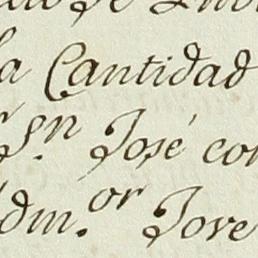 la Cantidad
Sn. José con
Adm.or Jove